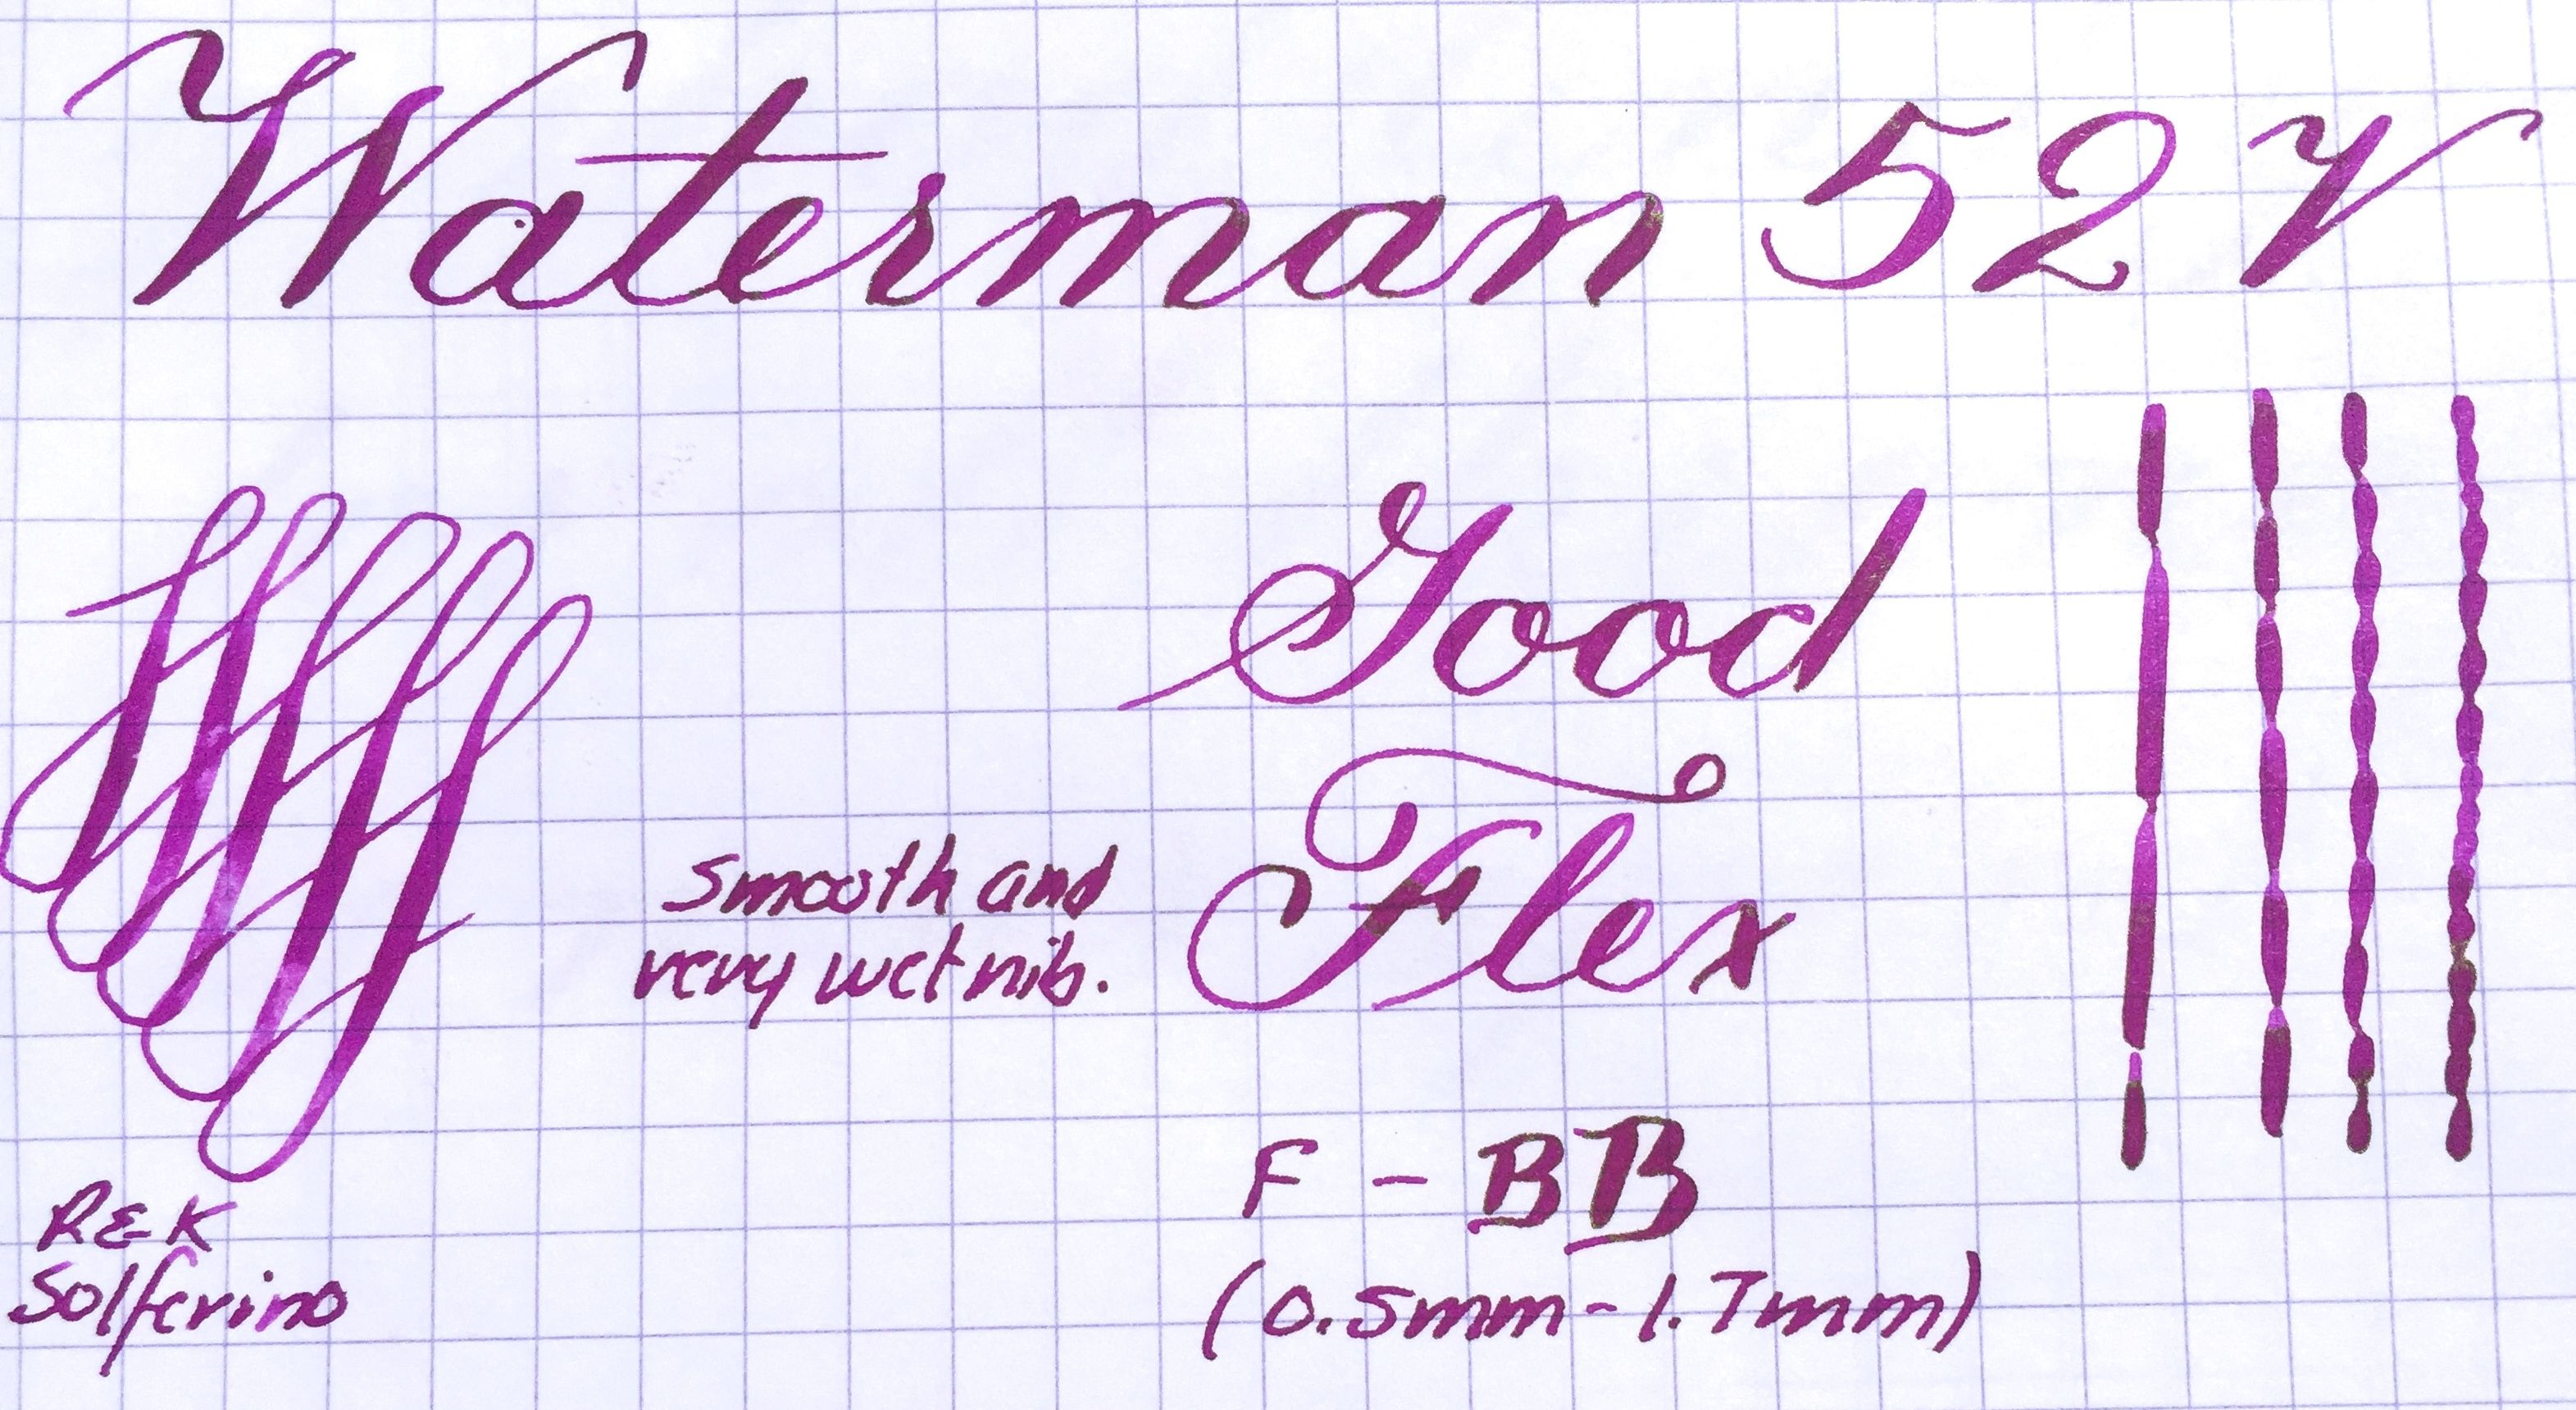 Waterman 52 V
Good
Flex
Smooth and
very wet nib.
F - BB
(0.5mm - 1.7mm)
R&K
Solferino